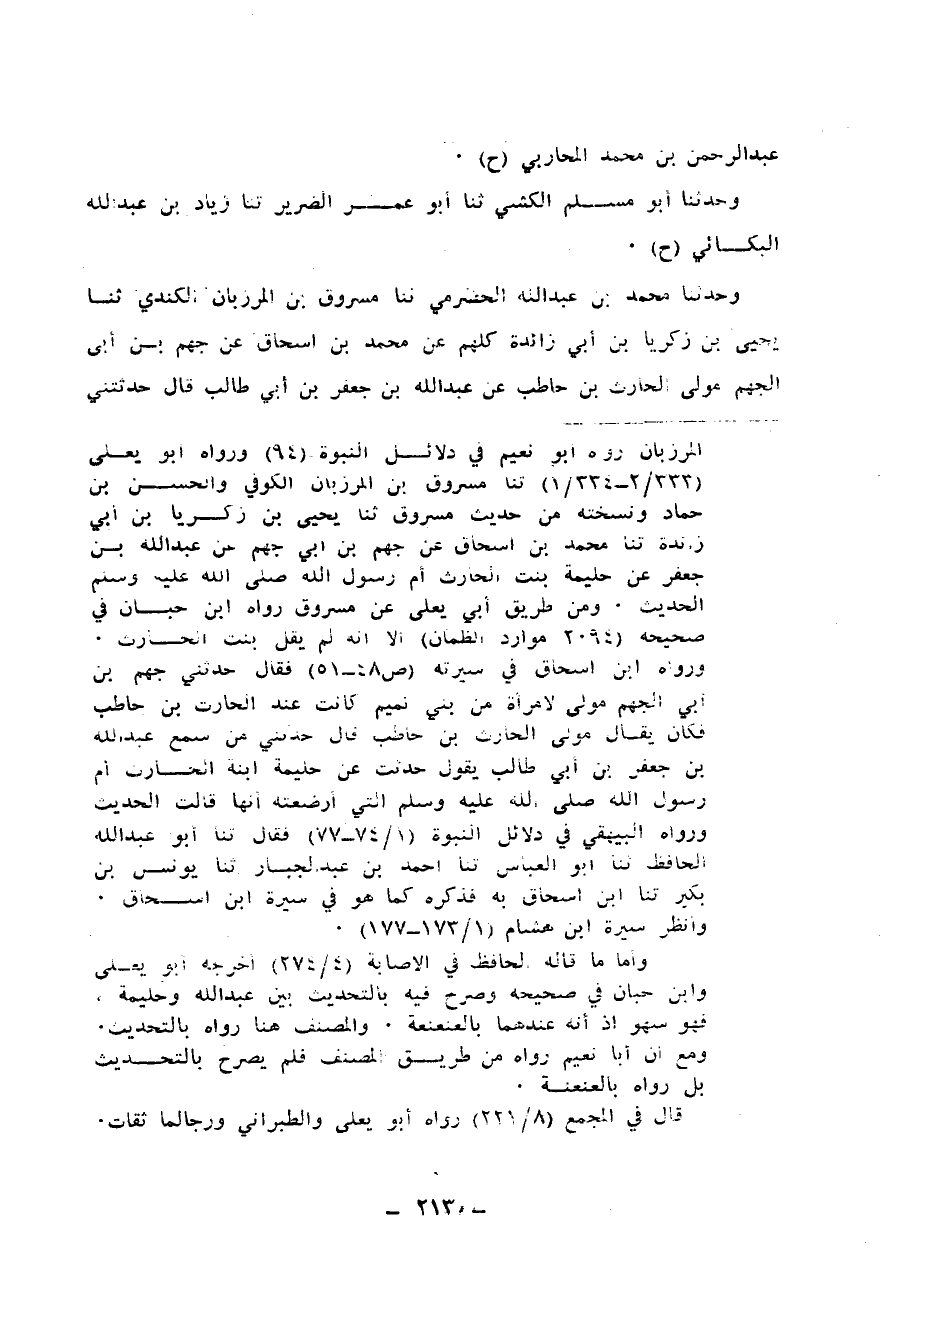 عبدالرحمن بن محمد المحاربي (ح) ٠
وحدثنا أبو مسلم الكشي ثنا أبو عمر الضرير ثنا زياد بن عبدالله
البكائي (ح) ٠
وحدثنا محمد بن عبدالله الحضرمي ثنا مسروق بن المرزبان الكندي ثنا
يحيى بن زكريا بن أبي زائدة كلهم عن محمد بن اسحاق عن جهم بن أبى
الجهم مولى الحارث بن حاطب عن عبدالله بن جعفر بن أبي طالب قال حدثتني
المرزبان رواه ابو نعيم في دلائل النبوة (٩٤) ورواه ابو يعلى
(٢/٣٣٣-١/٣٣٤) ثنا مسروق بن المرزبان الكوفي والحسن بن
حماد ونسخته من حديث مسروق ثنا يحيى بن زكريا بن أبي
زائدة ثنا محمد بن اسحاق عن جهم بن ابي جهم عن عبدالله بن
جعفر عن حليمة بنت الحارث أم رسول الله صلى الله عليه وسلم
الحديث ٠ ومن طريق أبي يعلى عن مسروق رواه ابن حبان في
صحيحه (٢٠٩٤ موارد الظمان) الا انه لم يقل بنت الحارث ٠
ورواه ابن اسحاق في سيرته (ص٤٨-٥١) فقال حدثني جهم بن
أبي الجهم مولى لامرأة من بني تميم كانت عند الحارث بن حاطب
فكان يقال مولى الحارث بن حاطب قال حدثني من سمع عبدالله
بن جعفر بن أبي طالب يقول حدثت عن حليمة ابنة الحارث أم
رسول الله صلى الله عليه وسلم التي أرضعته أنها قالت الحديث
ورواه البيهقي في دلائل النبوة (١/٧٤-٧٧) فقال ثنا أبو عبدالله
الحافظ ثنا ابو العباس ثنا احمد بن عبدالجبار ثنا يونس بن
بكير ثنا ابن اسحاق به فذكره كما هو في سيرة ابن اسحاق ٠
وانظر سيرة ابن هشام (١/١٧٣-١٧٧) ٠
وأما ما قاله الحافظ في الاصابة (٤/٢٧٤) أخرجه أبو يعلى
وابن حبان في صحيحه وصرح فيه بالتحديث بين عبدالله وحليمة ،
فهو سهو اذ أنه عندهما بالعنعنة ٠ والمصنف هنا رواه بالتحديث٠
ومع ان أبا نعيم رواه من طريق المصنف فلم يصرح بالتحديث
بل رواه بالعنعنة ٠
قال في المجمع (٨/٢٢١) رواه أبو يعلى والطبراني ورجالهما ثقات٠
- ٢١٣ -